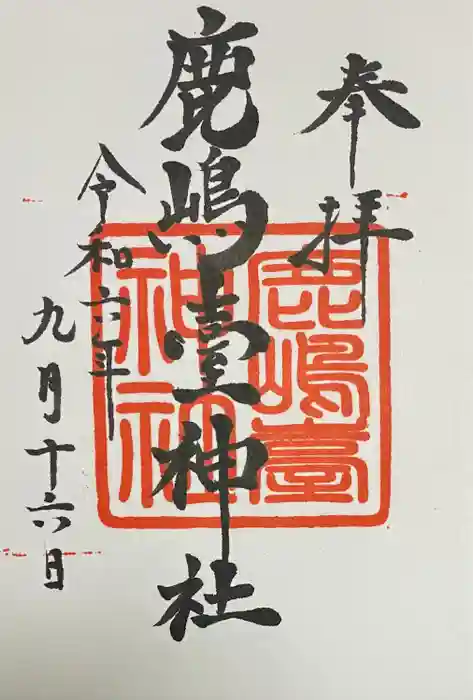 奉拝
鹿嶋臺神社
令和六年
九月十六日
鹿嶋臺
神社